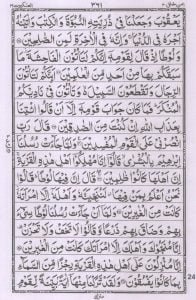 ۳۹۱
يَعْقُوْبَ وَجَعَلْنَا فِيْ ذُرِّيَّتِهِ النُّبُوَّةَ وَالْكِتٰبَ وَاٰتَيْنٰهُ
اَجْرَهٗ فِي الدُّنْيَا وَاِنَّهٗ فِي الْاٰخِرَةِ لَمِنَ الصّٰلِحِيْنَ
وَلُوْطًا اِذْ قَالَ لِقَوْمِهٖٓ اِنَّكُمْ لَتَاْتُوْنَ الْفَاحِشَةَ مَا
سَبَقَكُمْ بِهَا مِنْ اَحَدٍ مِّنَ الْعٰلَمِيْنَ اَئِنَّكُمْ لَتَاْتُوْنَ
الرِّجَالَ وَتَقْطَعُوْنَ السَّبِيْلَ وَتَاْتُوْنَ فِيْ نَادِيْكُمُ
الْمُنْكَرَ فَمَا كَانَ جَوَابَ قَوْمِهٖٓ اِلَّآ اَنْ قَالُوا ائْتِنَا
بِعَذَابِ اللّٰهِ اِنْ كُنْتَ مِنَ الصّٰدِقِيْنَ قَالَ رَبِّ
انْصُرْنِيْ عَلَى الْقَوْمِ الْمُفْسِدِيْنَ وَلَمَّا جَآءَتْ رُسُلُنَآ
اِبْرٰهِيْمَ بِالْبُشْرٰى قَالُوْٓا اِنَّا مُهْلِكُوْٓا اَهْلِ هٰذِهِ الْقَرْيَةِ
اِنَّ اَهْلَهَا كَانُوْا ظٰلِمِيْنَ قَالَ اِنَّ فِيْهَا لُوْطًا قَالُوْا
نَحْنُ اَعْلَمُ بِمَنْ فِيْهَا لَنُنَجِّيَنَّهٗ وَاَهْلَهٗٓ اِلَّا امْرَاَتَهٗ
كَانَتْ مِنَ الْغٰبِرِيْنَ وَلَمَّآ اَنْ جَآءَتْ رُسُلُنَا لُوْطًا سِيْٓءَ
بِهِمْ وَضَاقَ بِهِمْ ذَرْعًا وَّقَالُوْا لَا تَخَفْ وَلَا تَحْزَنْ
اِنَّا مُنَجُّوْكَ وَاَهْلَكَ اِلَّا امْرَاَتَكَ كَانَتْ مِنَ الْغٰبِرِيْنَ
اِنَّا مُنْزِلُوْنَ عَلٰٓى اَهْلِ هٰذِهِ الْقَرْيَةِ رِجْزًا مِّنَ السَّمَآءِ
بِمَا كَانُوْا يَفْسُقُوْنَ وَلَقَدْ تَّرَكْنَا مِنْهَآ اٰيَةًۢ بَيِّنَةً لِّقَوْمٍ
24